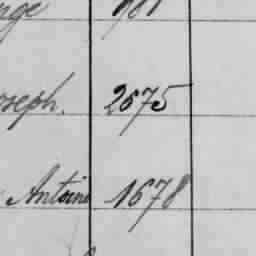 oseph. 2675
Antoine 1678